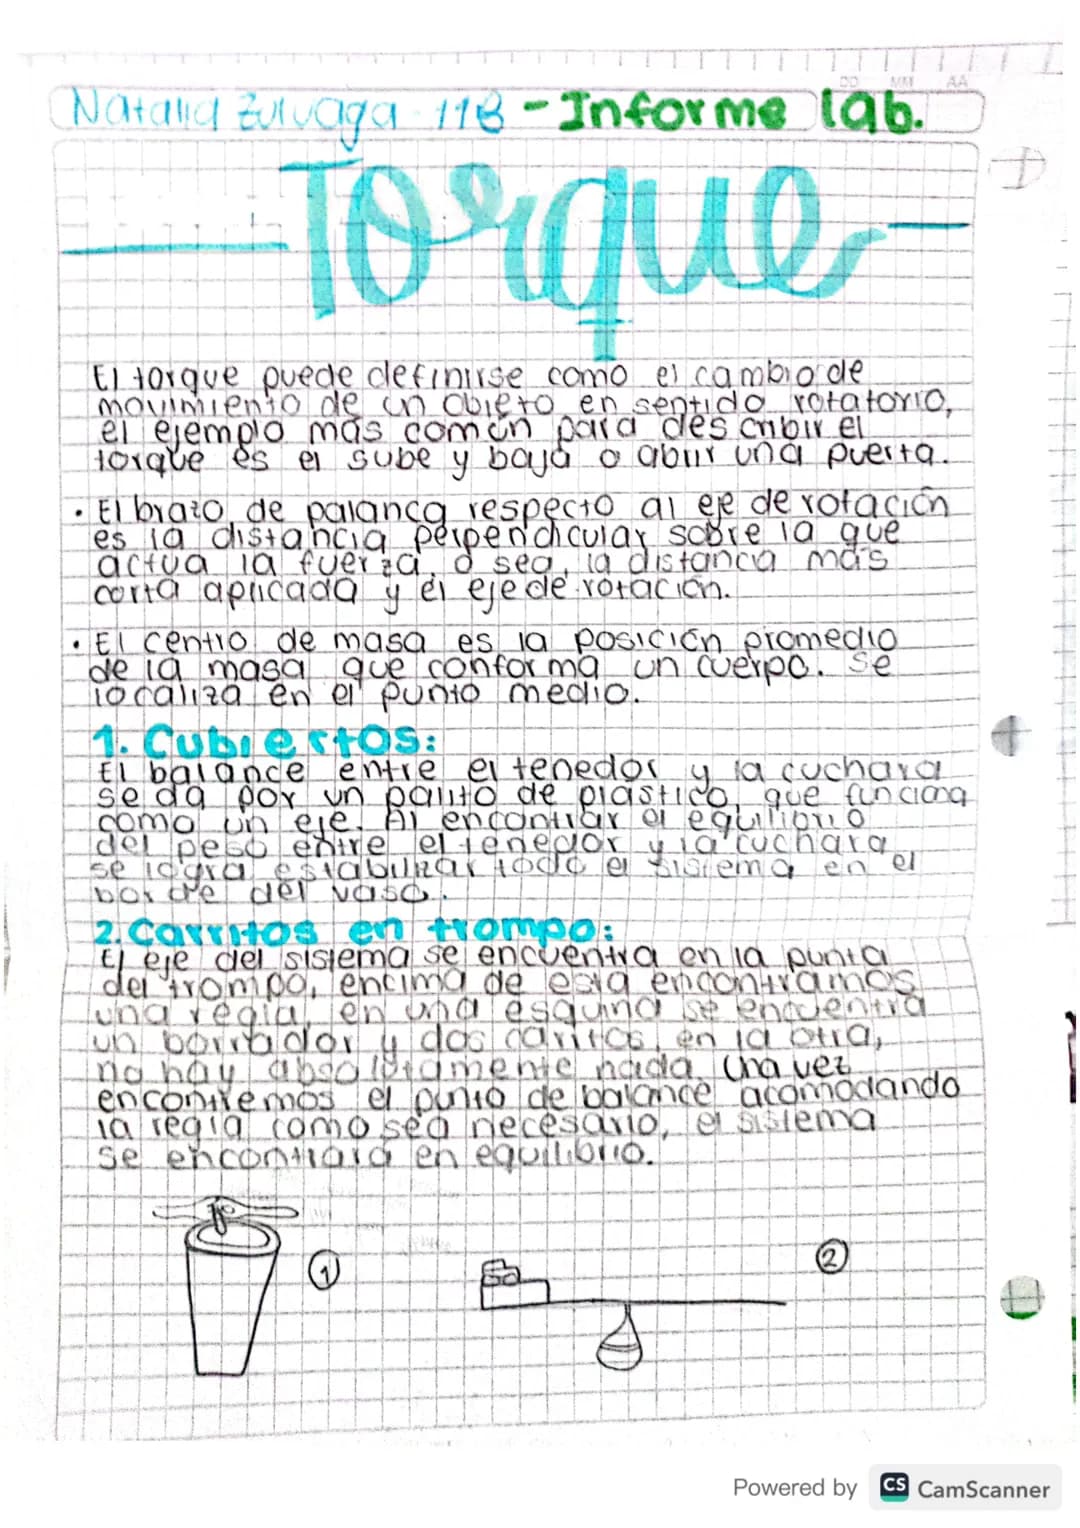 DD MM AA
Natalia Zuluaga 11B - Informe lab.
Torque
El torque puede definirse como el cambio de
movimiento de un objeto en sentido rotatorio,
el ejemplo más común para describir el
torque es el sube y baja o abrir una puerta.
• El brazo de palanca respecto al eje de rotación
es la distancia perpendicular sobre la que
actua la fuerza, o sea, la distancia más
corta aplicada y el eje de rotación.
• El centro de masa es la posición promedio
de la masa que conforma un cuerpo. Se
localiza en el punto medio.
1. Cubiertos:
El balance entre el tenedor y la cuchara
se da por un palito de plástico, que funciona
como un eje. Al encontrar el equilibrio
del peso entre el tenedor y la cuchara
se logra estabilizar todo el sistema en el
borde del vaso.
2. Carritos en trompo:
El eje del sistema se encuentra en la punta
del trompo, encima de esta encontramos
una regla, en una esquina se encuentra
un borrador y dos carritos, en la otra,
no hay absolutamente nada. Una vez
encontremos el punto de balance acomodando
la regla como sea necesario, el sistema
se encontrará en equilibrio.
1
2
Powered by CS CamScanner